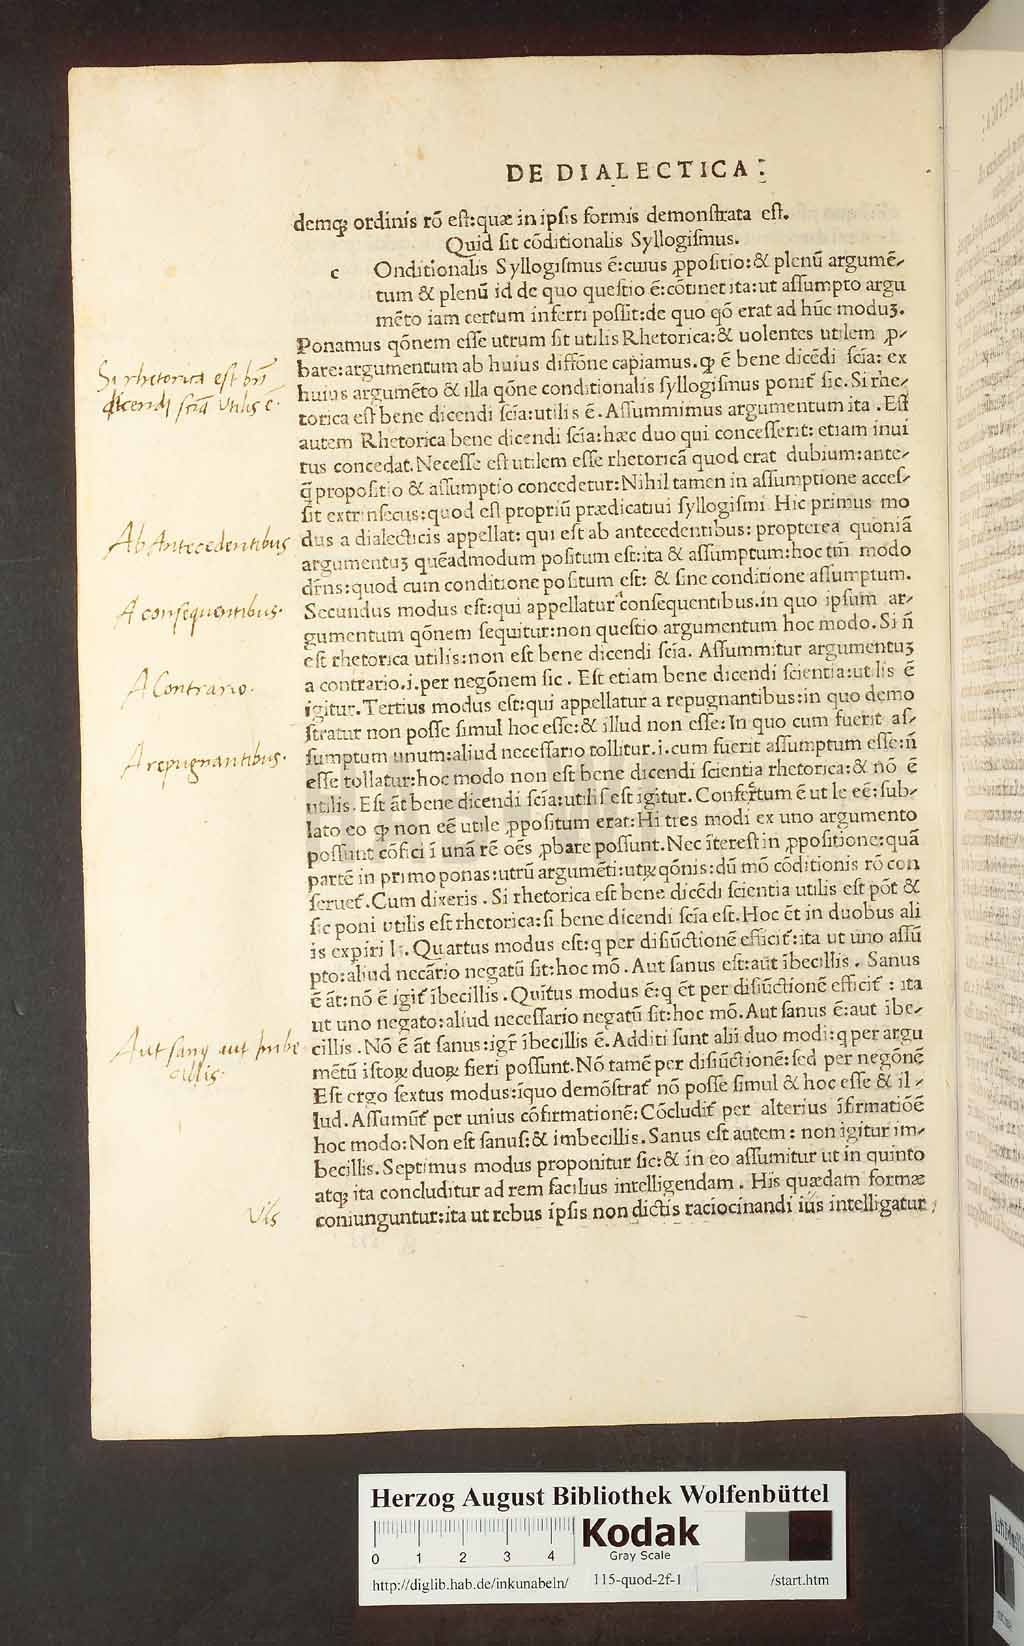 DE DIALECTICA:
demq; ordinis rõ est:quæ in ipsis formis demonstrata est.
Quid sit cõditionalis Syllogismus.
c Onditionalis Syllogismus ẽ:cuius ꝓpositio:& plenũ argumẽ-
tum & plenũ id de quo questio ẽ:cõtinet ita:ut assumpto argu
mẽto iam certum inferri possit:de quo qõ erat ad hũc moduꝫ.
Ponamus qõnem esse utrum sit utilis Rhetorica:& uolentes utilem ꝓ-
bare:argumentum ab huius diffõne capiamus.ꝙ ẽ bene dicẽdi scĩa: ex
huius argumẽto & illa qõne conditionalis syllogismus ponit̃ sic. Si rhe-
torica est bene dicendi scĩa:utilis ẽ. Assummimus argumentum ita . Est
autem Rhetorica bene dicendi scĩa:hæc duo qui concesserit: etiam inui
tus concedat. Necesse est utilem esse rhetoricã quod erat dubium:ante-
q̃ propositio & assumptio concedetur:Nihil tamen in assumptione acces-
sit extrinsecus:quod est propriũ prædicatiui syllogismi Hic primus mo
dus a dialecticis appellat: qui est ab antecedentibus: propterea quoniã
argumentuꝫ quẽadmodum positum est:ita & assumptum:hoc tm̃ modo
dr̃ns:quod cum conditione positum est: & sine conditione assumptum.
Secundus modus est:qui appellatur consequentibus.in quo ipsum ar-
gumentum qõnem sequitur:non questio argumentum hoc modo. Si ñ
est rhetorica utilis:non est bene dicendi scĩa. Assummitur argumentuꝫ
a contrario.i.per negõnem sic . Est etiam bene dicendi scientia:utilis ẽ
igitur. Tertius modus est:qui appellatur a repugnantibus:in quo demo
stratur non posse simul hoc esse:& illud non esse: In quo cum fuerit as-
sumptum unum:aliud necessario tollitur.i.cum fuerit assumptum esse:ñ
esse tollatur:hoc modo non est bene dicendi scientia rhetorica:& nõ ẽ
utilis. Est ãt bene dicendi scĩa:utilis est igitur. Confertum ẽ ut le eẽ:sub-
lato eo ꝙ non eẽ utile ꝓpositum erat:Hi tres modi ex uno argumento
possunt cõfici ĩ unã rẽ oẽs ꝓbare possunt. Nec ĩterest in ꝓpositione:quã
partẽ in primo ponas:utrũ argumẽti:utꝝ qõnis:dũ mõ cõditionis rõ con
seruet̃. Cum dixeris . Si rhetorica est bene dicẽdi scientia utilis est põt &
sic poni utilis est rhetorica:si bene dicendi scĩa est. Hoc ẽt in duobus ali
is expiri l:. Quartus modus est:q per disiũctionẽ efficit̃:ita ut uno assũ
pto:aliud necãrio negatũ sit:hoc mõ . Aut sanus est:aut ĩbecillis . Sanus
ẽ ãt:nõ ẽ igit̃ ĩbecillis . Quĩtus modus ẽ:q ẽt per disiũctionẽ efficit̃ : ita
ut uno negato:aliud necessario negatũ sit:hoc mõ. Aut sanus ẽ:aut ĩbe-
cillis . Nõ ẽ ãt sanus:igr̃ ĩbecillis ẽ. Additi sunt alii duo modi:q per argu
mẽtũ istoꝝ duoꝝ fieri possunt. Nõ tamẽ per disiũctionẽ:sed per negõnẽ
Est ergo sextus modus:ĩquo demõstrat̃ nõ posse simul & hoc esse & il-
lud. Assumũt̃ per unius cõfirmationẽ: Cõcludit̃ per alterius ĩfirmatiõẽ
hoc modo: Non est sanus:& imbecillis. Sanus est autem: non igitur im-
becillis. Septimus modus proponitur sic:& in eo assumitur ut in quinto
atq; ita concluditur ad rem facilius intelligendam . His quædam formæ
coniunguntur:ita ut rebus ipsis non dictis raciocinandi iũs intelligatur
Si rhetorica est bñ
dicendj scĩa Utilis ẽ.
Ab Antecedentibus
A consequentibus.
A Contrario.
A repugnantibus.
Aut sanꝯ aut Imbe
cillis.
Vis
Herzog August Bibliothek Wolfenbüttel
0 1 2 3 4
Kodak
Gray Scale
http://diglib.hab.de/inkunabeln/ 115-quod-2f-1 /start.htm